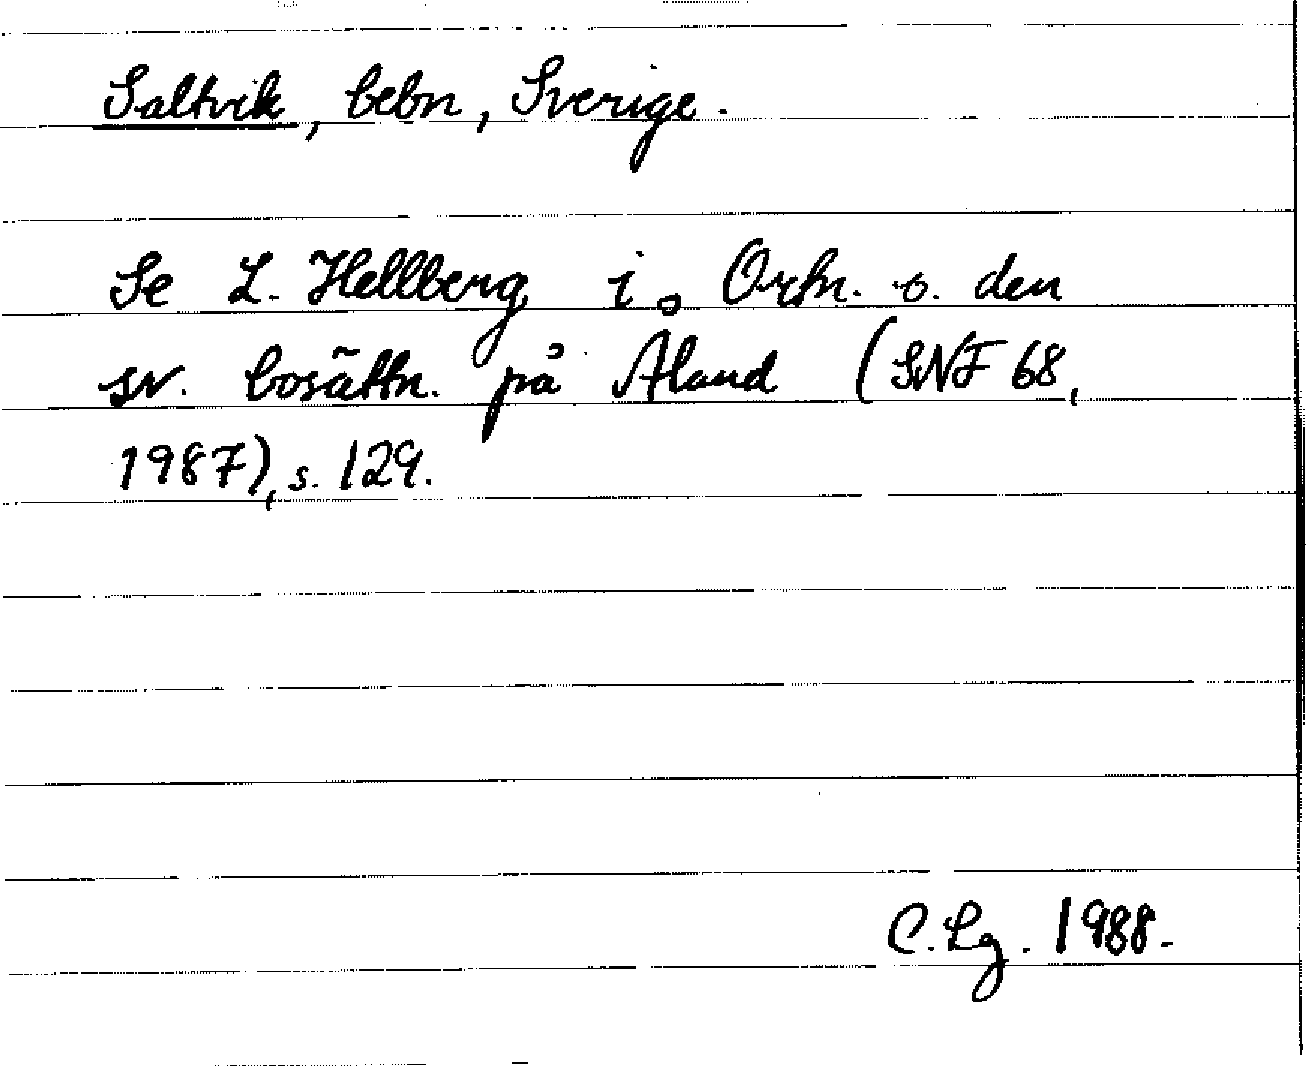 Saltvik, bebn, Sverige.
Se L. Hellberg i Ortn. o. den
sv. bosättn. på Åland (SNF 68,
1987), s. 129.
C. Lg. 1988.